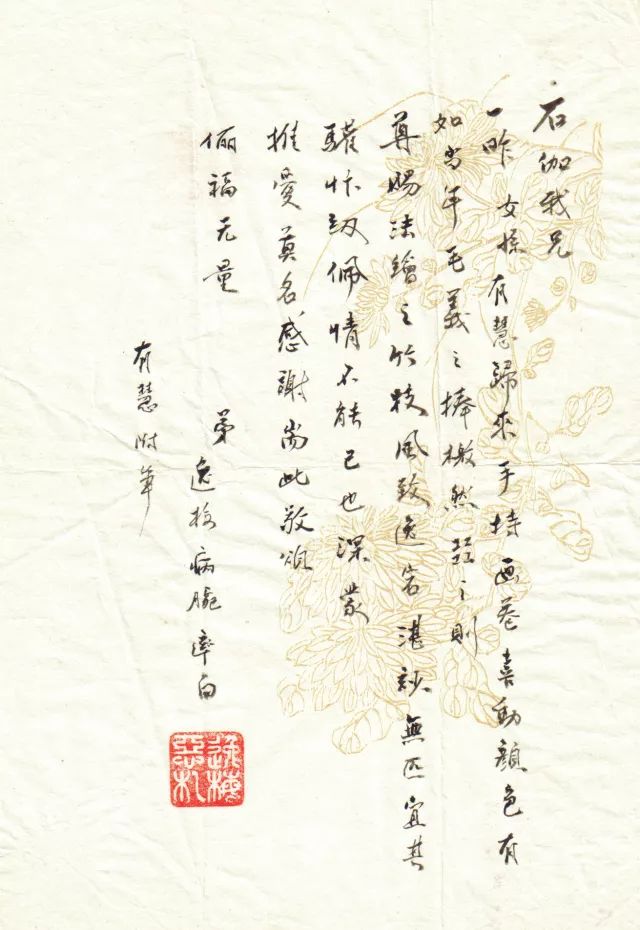 石伽我兄
一昨 女孫 有慧歸來手持画卷喜動顏色有
如当年毛義之捧檄然 之則
尊賜法繪之竹枝風致逸宕湛玅無匹宜其
驩忭 佩情不能已也深蒙
推愛莫名感謝耑此敬頌
儷福无量
弟 逸梅病腕率白
有慧附筆
逸梅
惡札